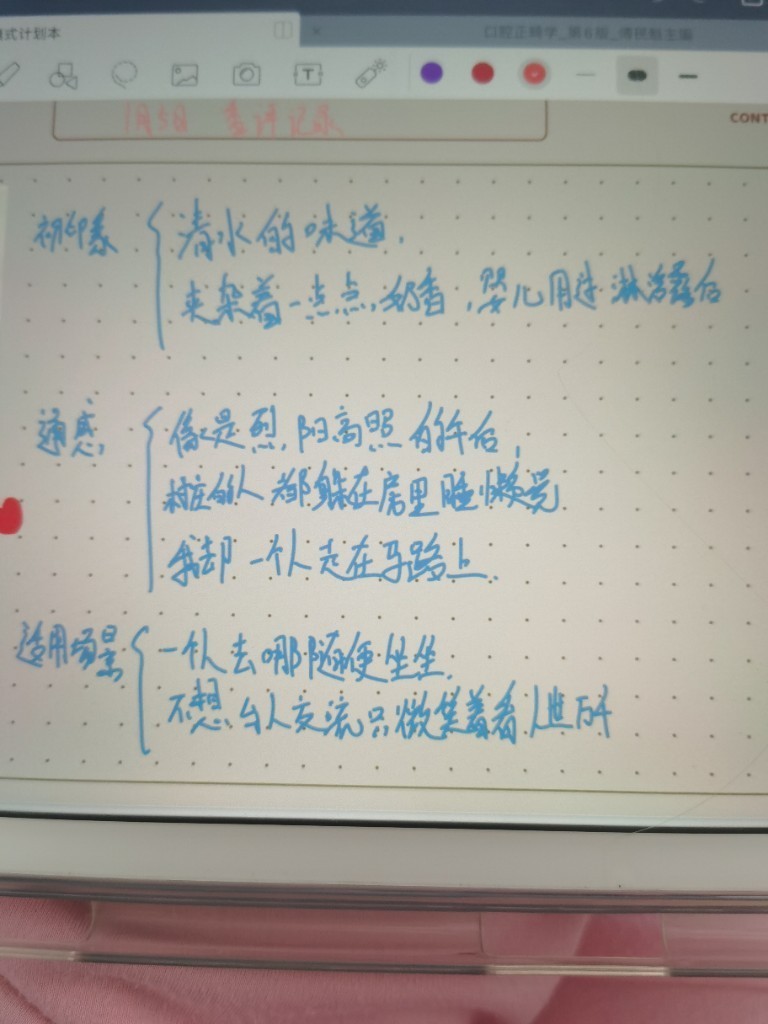 式计划本
口腔正畸学_第6版_傅民魁主编
T
CONT
1月5日 香评记录
初印象
清水的味道，
夹架着一点点奶香，婴儿用过沐浴露后
通感
像是烈阳高照的午后，
村庄的人都躲在房里睡懒觉
我却一个人走在马路上.
适用场景
一个人去哪随便坐坐.
不想与人交流只微笑着看人世百千